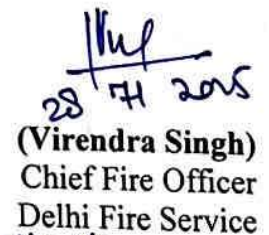 28 2015
(Virendra Singh)
Chief Fire Officer
Delhi Fire Service